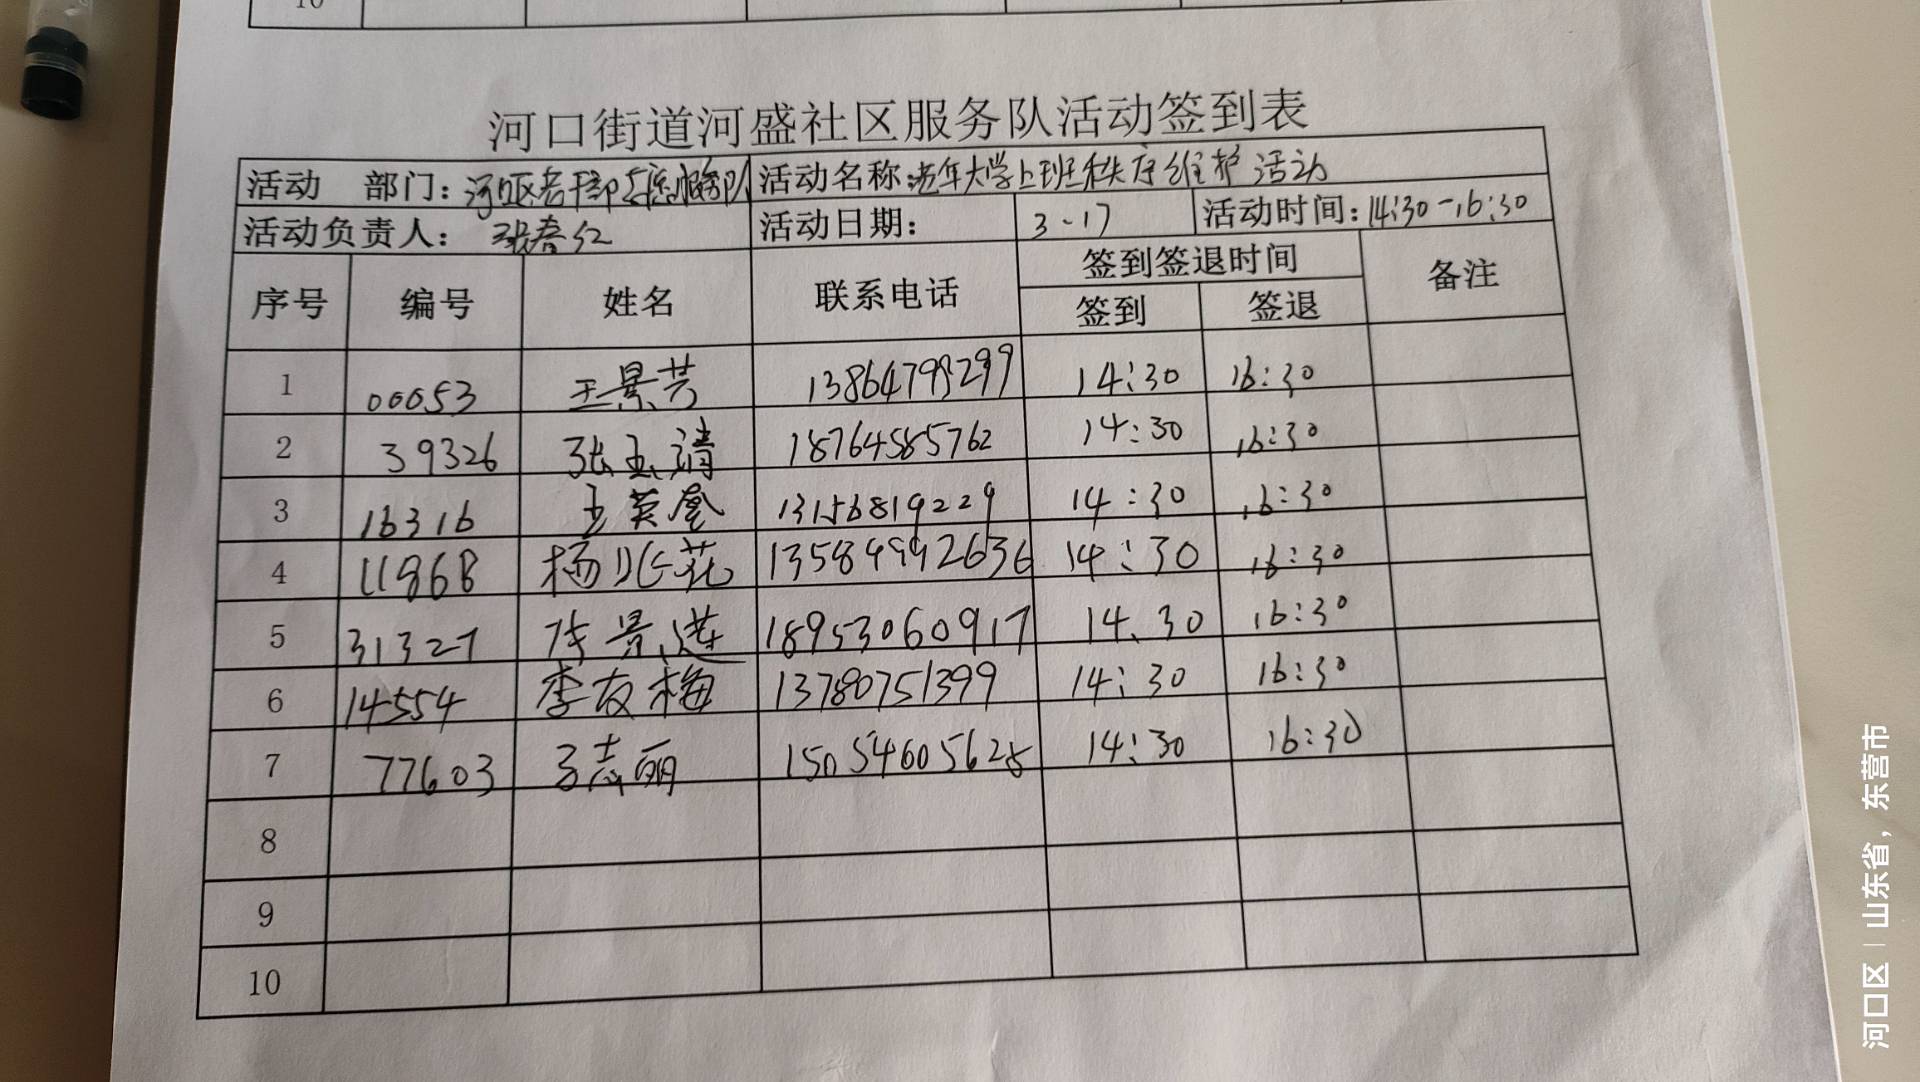 10
河口街道河盛社区服务队活动签到表
活动 部门：河口区老干部志愿服务队 活动名称：老年大学上班秩序维护活动
活动负责人： 张春红 活动日期： 3-17 活动时间：14:30-16:30
序号 编号 姓名 联系电话 签到签退时间 备注
签到 签退
1 00053 王景芳 13864799299 14:30 16:30
2 39326 张玉清 18764585762 14:30 16:30
3 16316 王英 13156819229 14:30 16:30
4 11868 杨 花 13589992636 14:30 16:30
5 31327 景莲 18953060917 14.30 16:30
6 14554 李友梅 13780751399 14:30 16:30
7 77603 志丽 15054605628 14:30 16:30
8
9
10
河口区 | 山东省，东营市